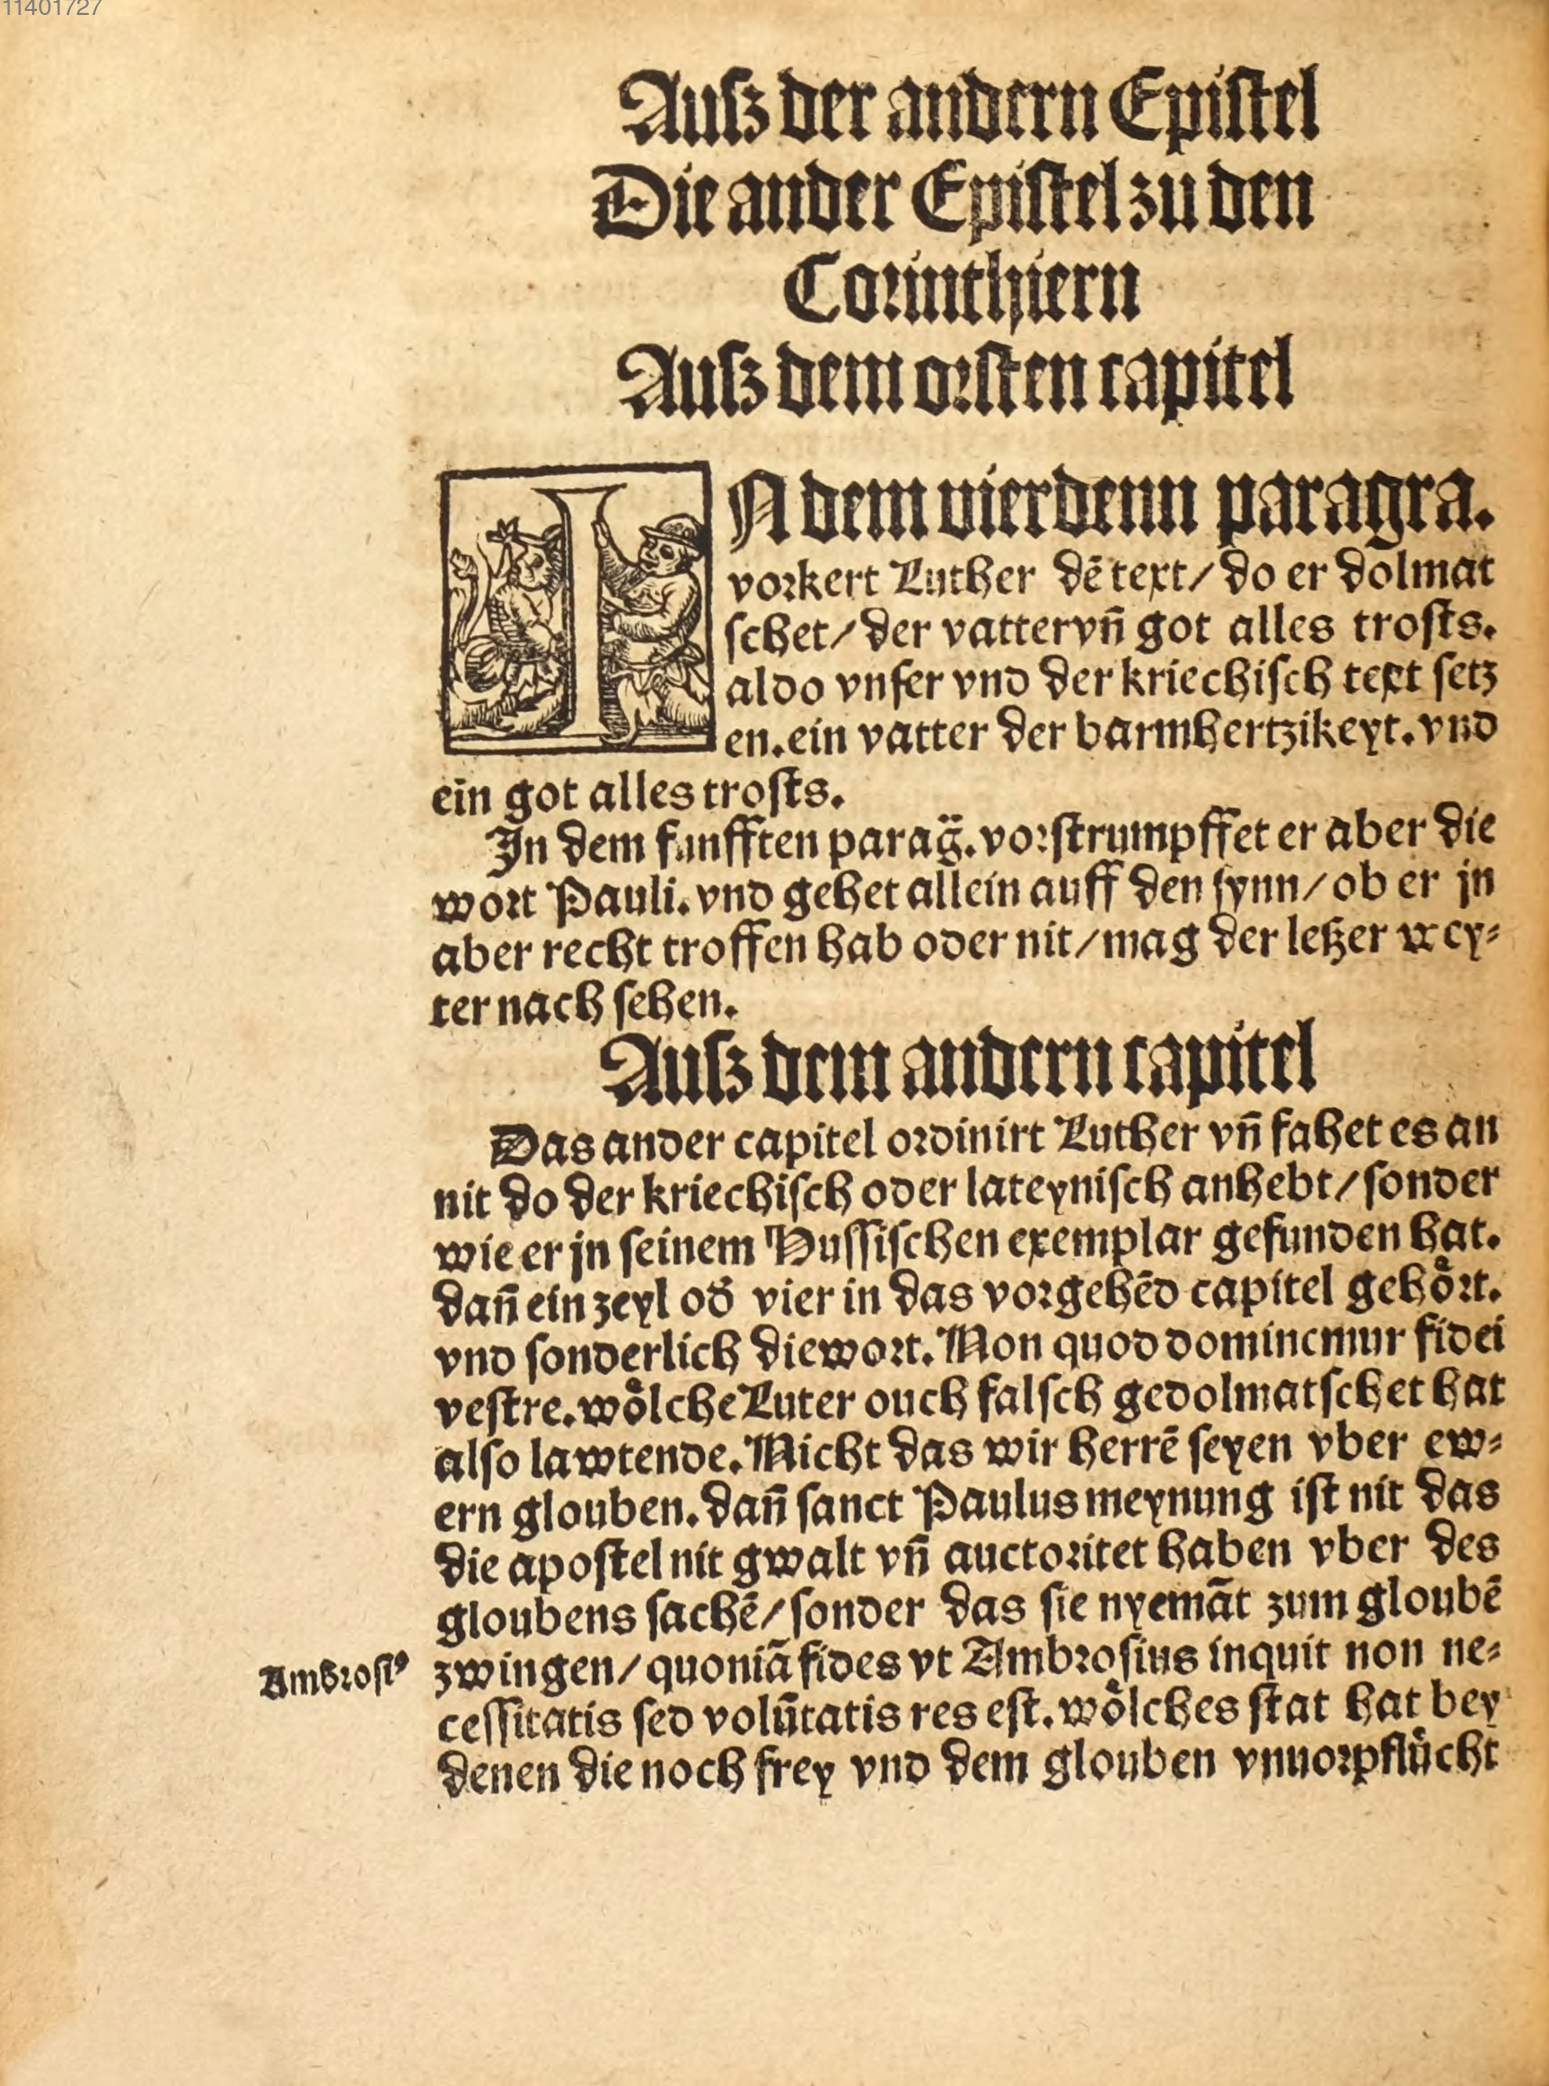 11401727
Auſz der andern Epiſtel
Die ander Epiſtel zu den
Corinthiern
Auſz dem orſten capitel
IN dem vierdenn paragra.
vorkert Luther dē text/ do er dolmat
ſchet/ der vatter vñ got alles troſts.
aldo vnſer vnd der kriechiſch text ſetz
en. ein vatter der barmhertzikeyt. vnd
ein got alles troſts.
In dem funfften parag̈. vorſtrumpffet er aber die
wort Pauli. vnd gehet allein auff den ſynn/ ob er jn
aber recht troffen hab oder nit/ mag der leſzer wey⸗
ter nach ſehen.
Auſz dem andern capitel
Das ander capitel ordinirt Luther vñ fahet es an
nit do der kriechiſch oder lateyniſch anhebt/ ſonder
wie er jn ſeinem Huſſiſchen exemplar gefunden hat.
dañ ein zeyl od̕ vier in das vorgehēd capitel gehoͤrt.
vnd ſonderlich die wort. Non quod dominemur fidei
veſtre. woͤlche Luter ouch falſch gedolmatſchet hat
alſo lawtende. Nicht das wir herrē ſeyen vber ew⸗
ern glouben. dañ ſanct Paulus meynung iſt nit das
die apoſtel nit gwalt vñ auctoritet haben vber des
gloubens ſachē/ ſonder das ſie nyemāt zum gloubē
Ambroſiꝰ
zwingen/ quoniā fides vt Ambroſius inquit non ne⸗
ceſſitatis ſed volūtatis res eſt. woͤlches ſtat hat bey
denen die noch frey vnd dem glouben vnuorpfluͤcht